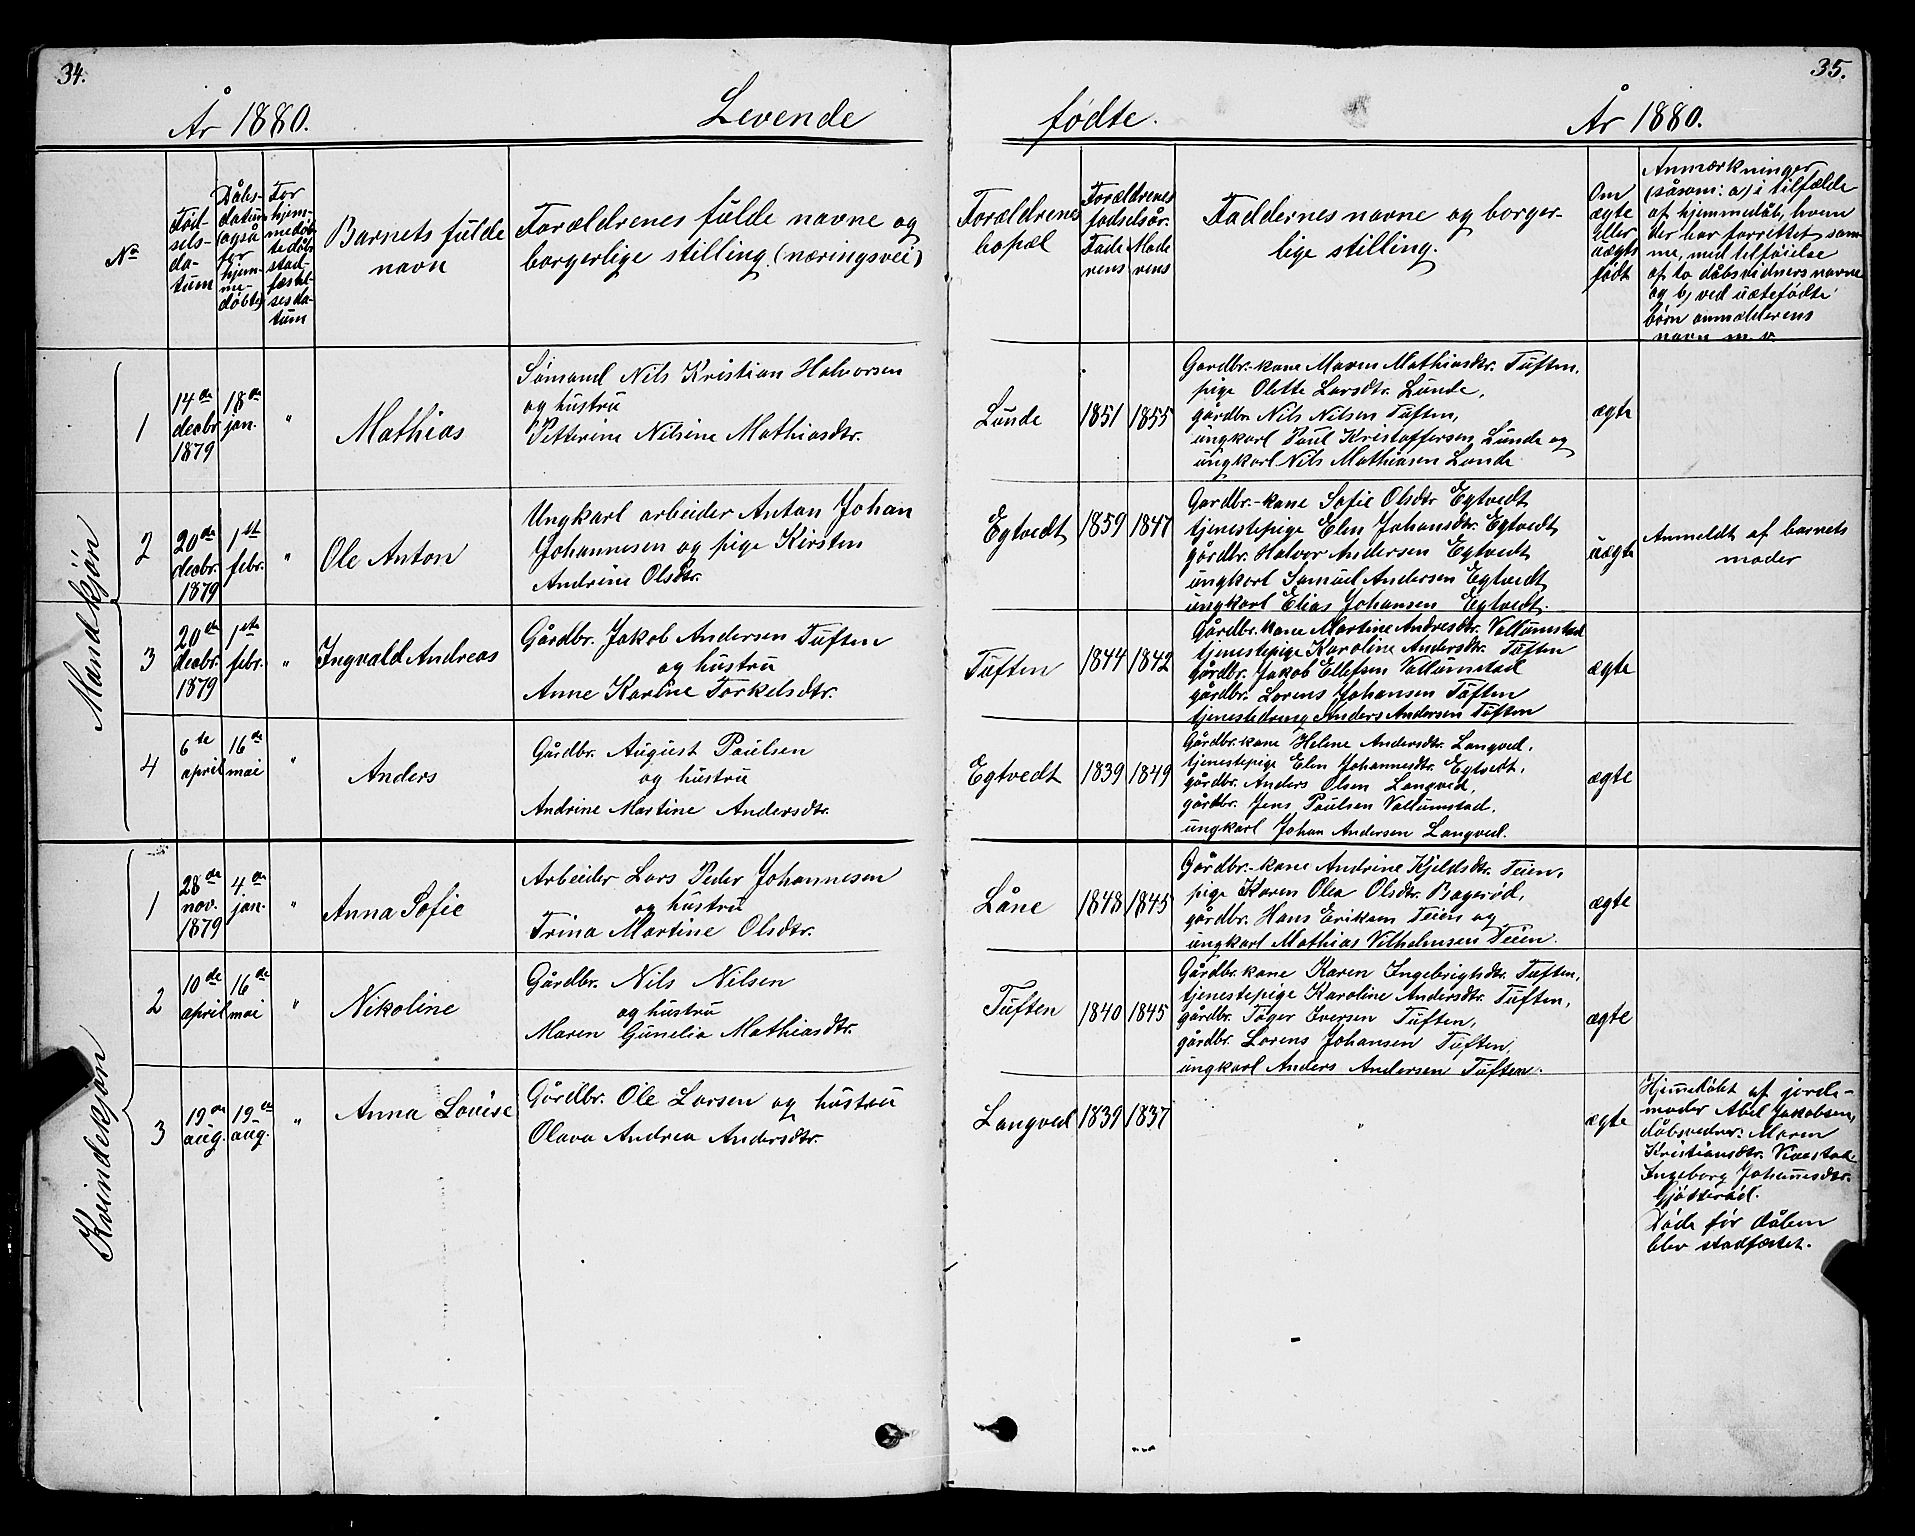 34.
År 1880.
Levende
fødte.
År 1880.
35.
No
Fød-
sels-
da-
tum
Dåbs-
datum
(også
for
hjem-
me-
døbte)
For
hjem-
medøb-
te dåbs-
stad-
fæstel-
sesda-
tum
Barnets fulde
navn
Forældrenes fulde navne og
borgerlige stilling (næringsvei)
Forældrenes
bopæl
Forældrenes
fødselsår.
Fade
rens
Mode
rens
Faddernes navne og borger-
lige stilling.
Om
ægte
eller
uægte
født
Anmærkninger
(såsom: a) i tilfælde
af hjemmedåb, hvem
der har forrettet sam-
me, med tilføielse
af to dåbsvidners navne
og b) ved uætefødte
børn anmelderens
navn m. v.
Mandkjøn
1
14de
decbr.
1879
18de
jan.
"
Mathias
Sømand Nils Kristian Halvorsen
og hustru
Petterine Nilsine Mathiasdtr.
Lunde
1851
1855
Gardbr.-kone Maren Mathiasdtr. Tuften,
pige Olette Larsdtr. Lunde,
gårdbr. Nils Nilsen Tuften,
ungkarl Paul Kristoffersen Lunde og
ungkarl Nils Mathiasen Lunde
ægte
2
20de
decbr.
1879
1ste
febr.
"
Ole Anton
Ungkarl arbeider Anton Johan
Johannesen og pige Kirsten
Andrine Olsdtr.
Egtvedt
1859
1847
Gardbr.-kone Sofie Olsdtr Egtvedt
tjenestepige Elen Johansdtr. Egtvedt
gårdbr. Halvor Andersen Egtvedt
ungkarl Samuel Andersen Egtvedt
ungkarl Elias Johansen Egtvedt.
uægte
Anmeldt af barnets
moder
3
20de
decbr.
1879
1ste
febr.
"
Ingvald Andreas
Gårdbr. Jakob Andersen Tuften
og hustru
Anne Karine Torkelsdtr.
Tuften
1844
1842
Gårdbr.kone Martine Andresdtr. Vallumstad
tjenestepige Karoline Andersdtr. Tuften
gårdbr. Jakob Ellefsen Vallumstad
gårdbr. Lorens Johansen Tuften
tjenestedreng Anders Andersen Tuften
ægte
4
6te
april
16de
mai
"
Anders
Gårdbr. August Paulsen
og hustru
Andrine Martine Andersdtr.
Egtvedt
1839
1849
Gårdbr.kone Helene Andersdtr. Langved,
tjenestepige Elen Johannesdtr. Egtvedt,
gårdbr. Anders Olsen Langved,
gårdbr. Jens Paulsen Vallumstad,
ungkarl Johan Andersen Langved.
ægte
Kvindekjøn
1
28de
nov.
1879
4.de
jan.
"
Anna Sofie
Arbeider Lars Peder Johannesen
og hustru
Trina Martine Olsdtr.
Låne
1848
1845
Gårdbr.-kone Andrine Kjeldsdtr. Teien,
pige Karen Olea Olsdtr. Bagerød,
gårdbr. Hans Eriksen Teien og
ungkarl Mathias Vilhelmsen Teien.
ægte
2
10de
april
16de
mai
"
Nikoline
Gårdbr. Nils Nilsen
og hustru
Maren Gunelia Mathiasdtr.
Tuften
1840
1845
Gårdbr.kone Karen Ingebrigtsdtr. Tuften,
tjenestepige Karoline Andersdtr. Tuften,
gårdbr. Tøger Iversen Tuften,
gårdbr. Lorens Johansen Tuften,
ungkarl Anders Andersen Tuften.
ægte
3
19de
aug.
19de
aug.
"
Anna Lovise
Gårdbr. Ole Larsen og hustru
Olava Andrea Andersdtr.
Langved
1839
1837
"
ægte
Hjemedøbt af jorde-
moder Abel Jakobsen,
dåbsvedner: Maren
Kristiansdtr.
Ingeborg Johannesdtr.
Døde før dåben
blev stadfæstet.